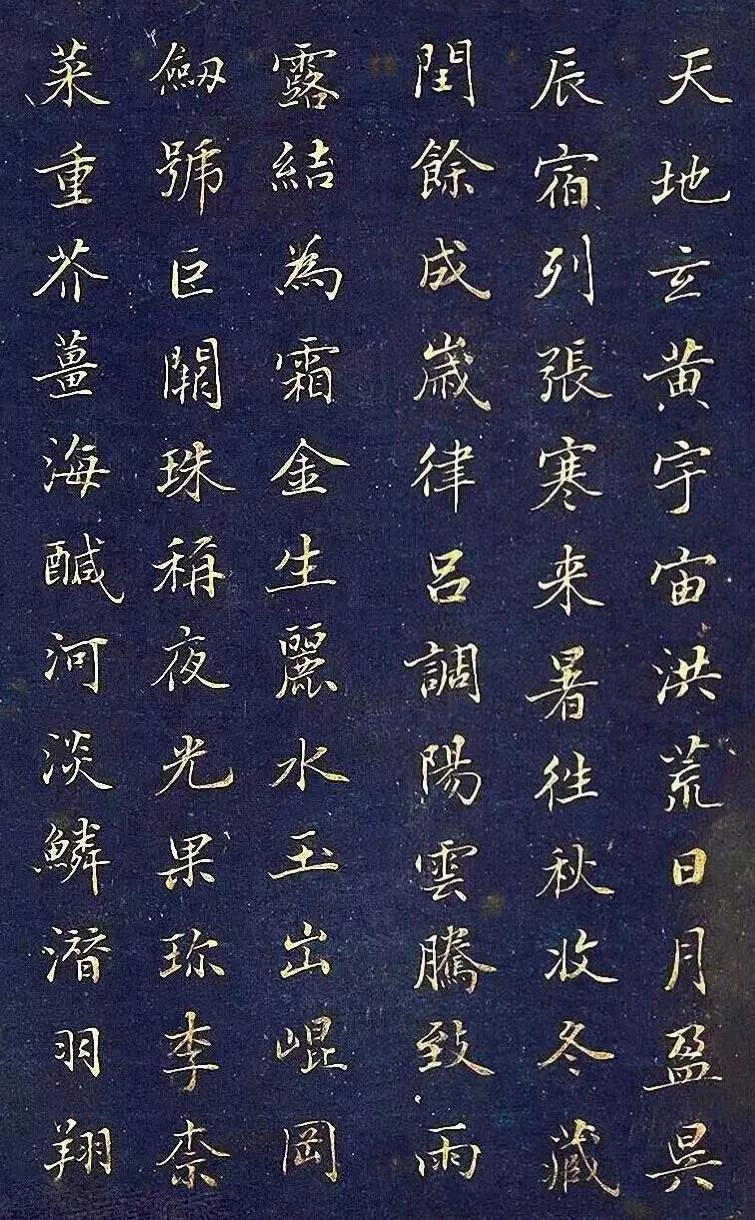 天地玄黄宇宙洪荒日月盈昃
辰宿列張寒来暑往秋收冬藏
閏餘成歲律呂調陽雲騰致雨
露結為霜金生麗水玉出崐岡
劔號巨闕珠稱夜光果珎李柰
菜重芥薑海醎河淡鱗潛羽翔